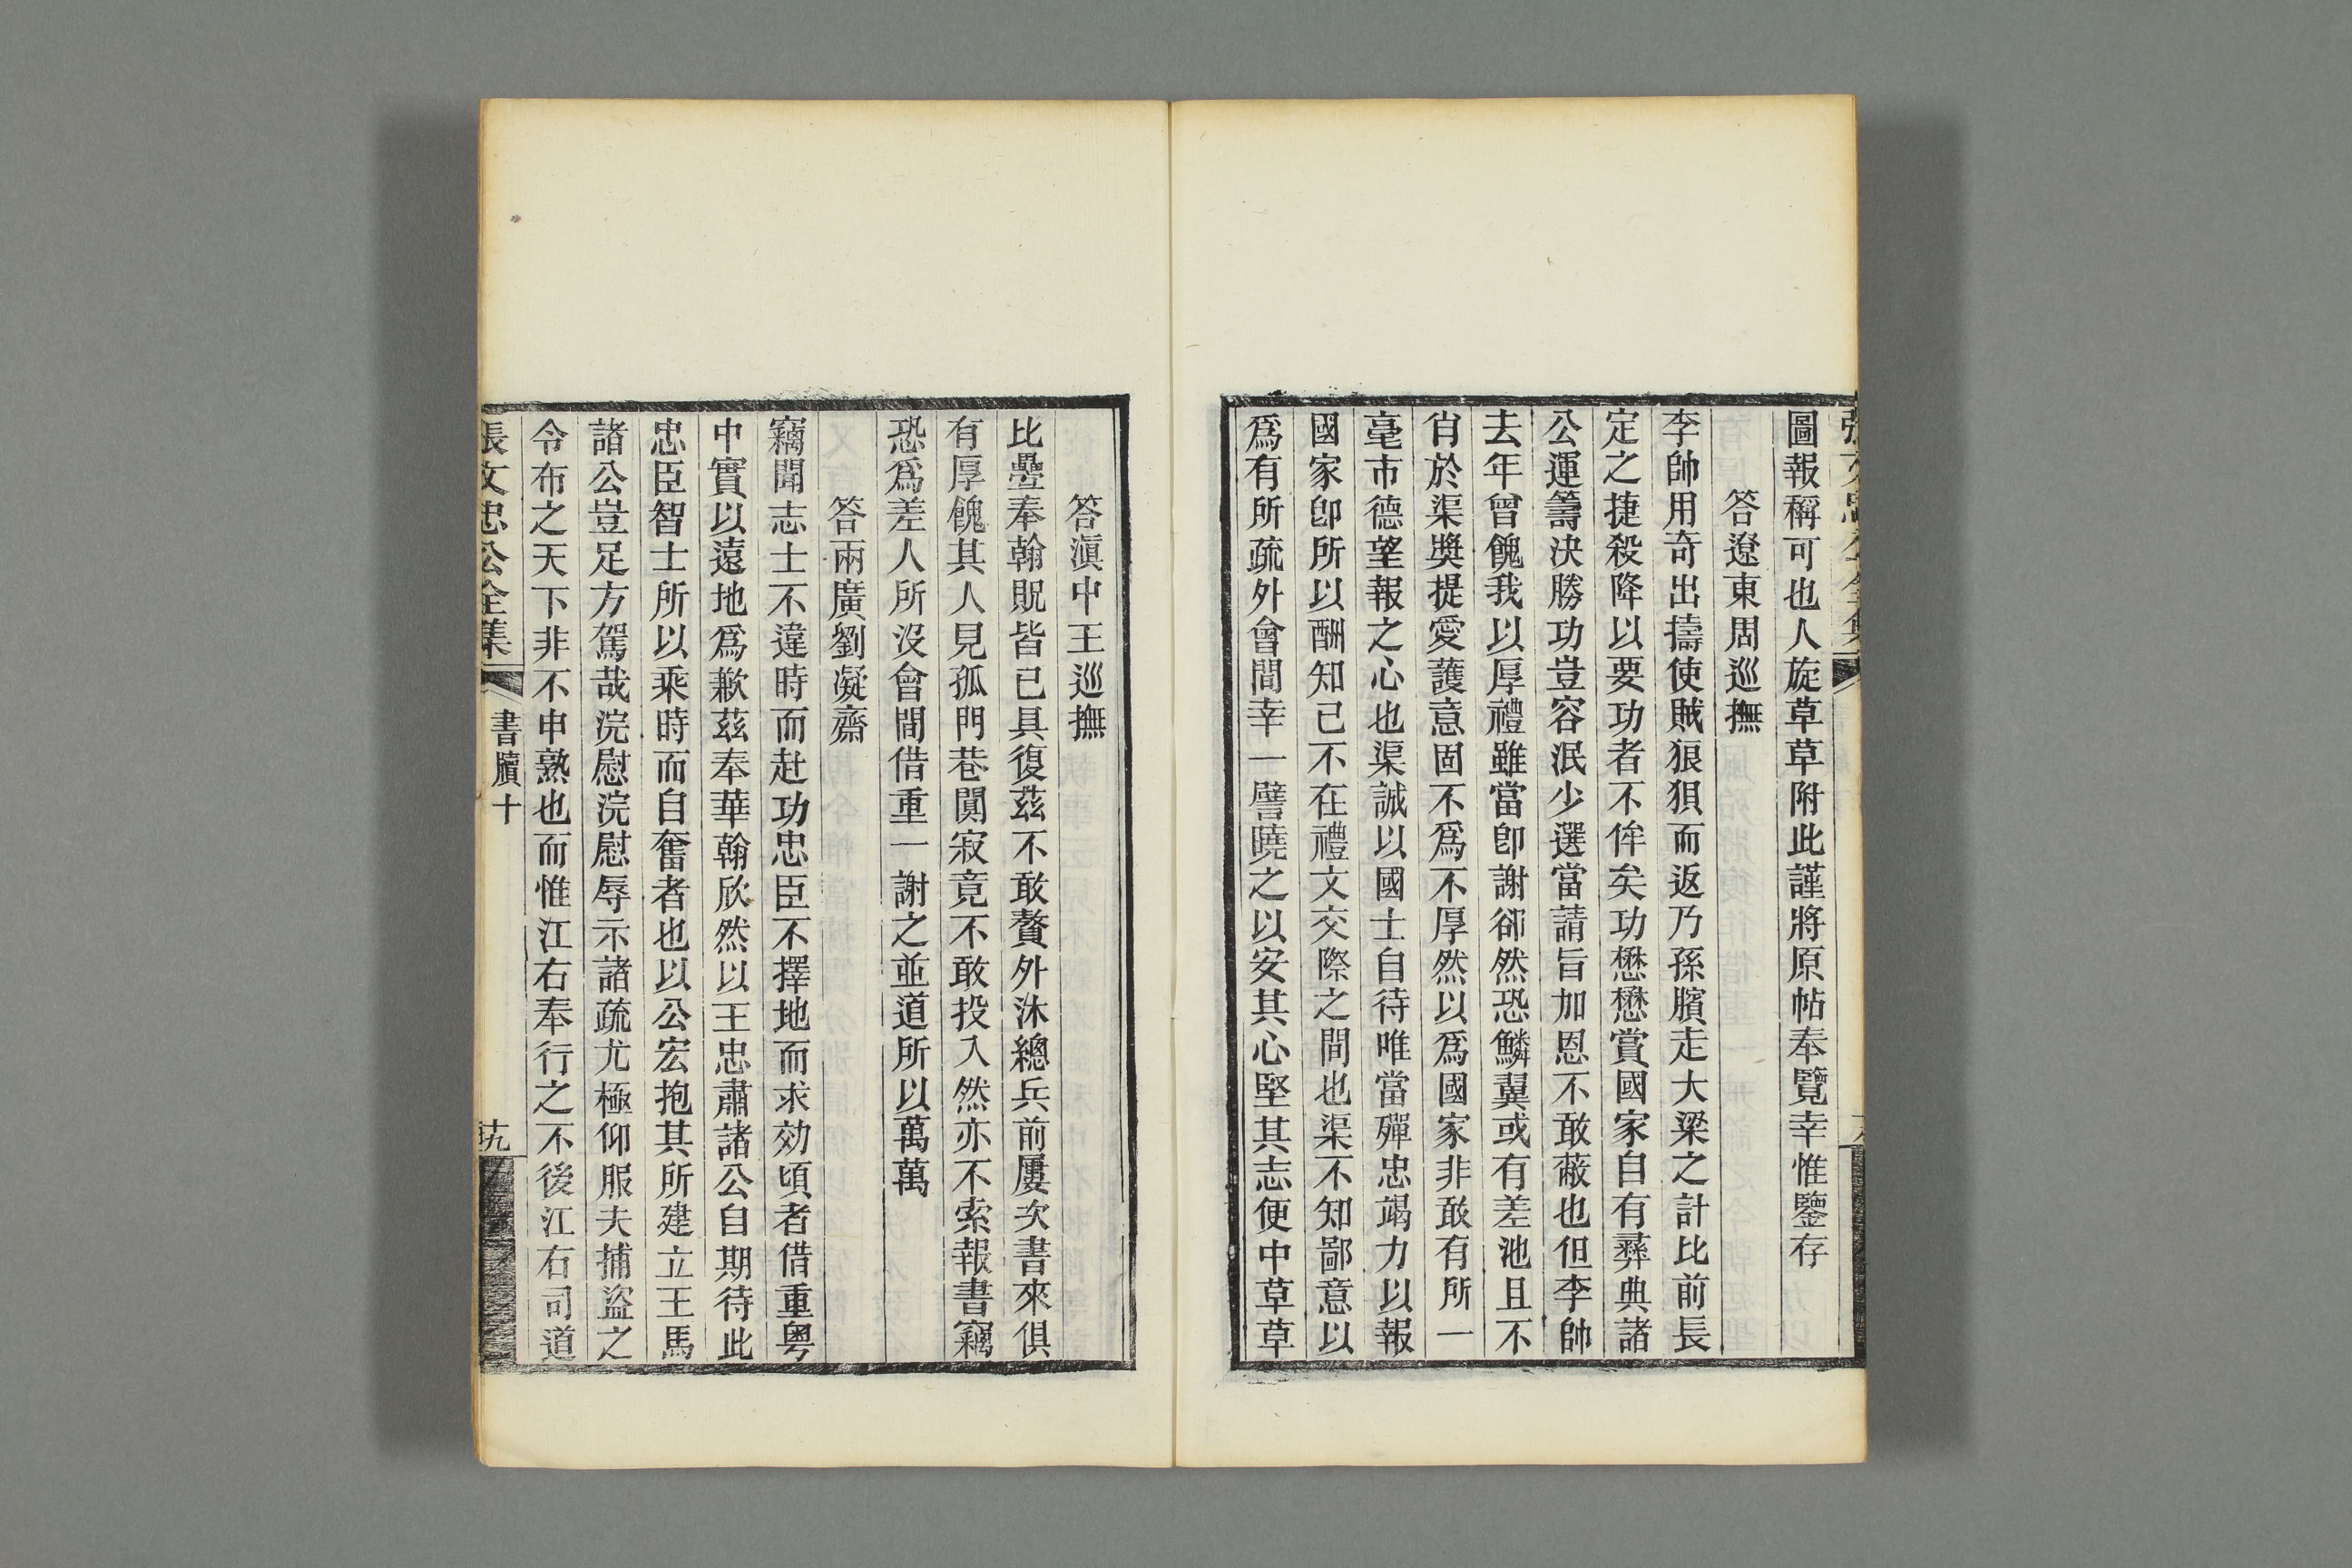 圖報稱可也人旋草草附此謹將原帖奉覽幸惟鑒存
答遼東周巡撫
李帥用奇出擣使賊狼狽而返乃孫臏走大梁之計比前長
定之捷殺降以要功者不侔矣功懋懋賞國家自有彞典諸
公運籌決勝功豈容泯少選當請旨加恩不敢蔽也但李帥
去年曾餽我以厚禮雖當卽謝卻然恐鱗翼或有差池且不
肖於渠奬提愛護意固不爲不厚然以爲國家非敢有所一
毫市德望報之心也渠誠以國士自待唯當殫忠竭力以報
國家卽所以酬知己不在禮文交際之間也渠不知鄙意以
爲有所疏外會間幸一譬曉之以安其心堅其志便中草草
答滇中王巡撫
比疊奉翰貺皆已具復茲不敢贅外沐總兵前屢次書來俱
有厚餽其人見孤門巷闃寂竟不敢投入然亦不索報書竊
恐爲差人所沒會間借重一謝之並道所以萬萬
答兩廣劉凝齋
竊聞志士不違時而赴功忠臣不擇地而求効頃者借重粤
中實以遠地爲歉茲奉華翰欣然以王忠肅諸公自期待此
忠臣智士所以乘時而自奮者也以公宏抱其所建立王馬
諸公豈足方駕哉浣慰浣慰辱示諸疏尤極仰服夫捕盜之
令布之天下非不申熟也而惟江右奉行之不後江右司道
張文忠公全集
書牘十
十九